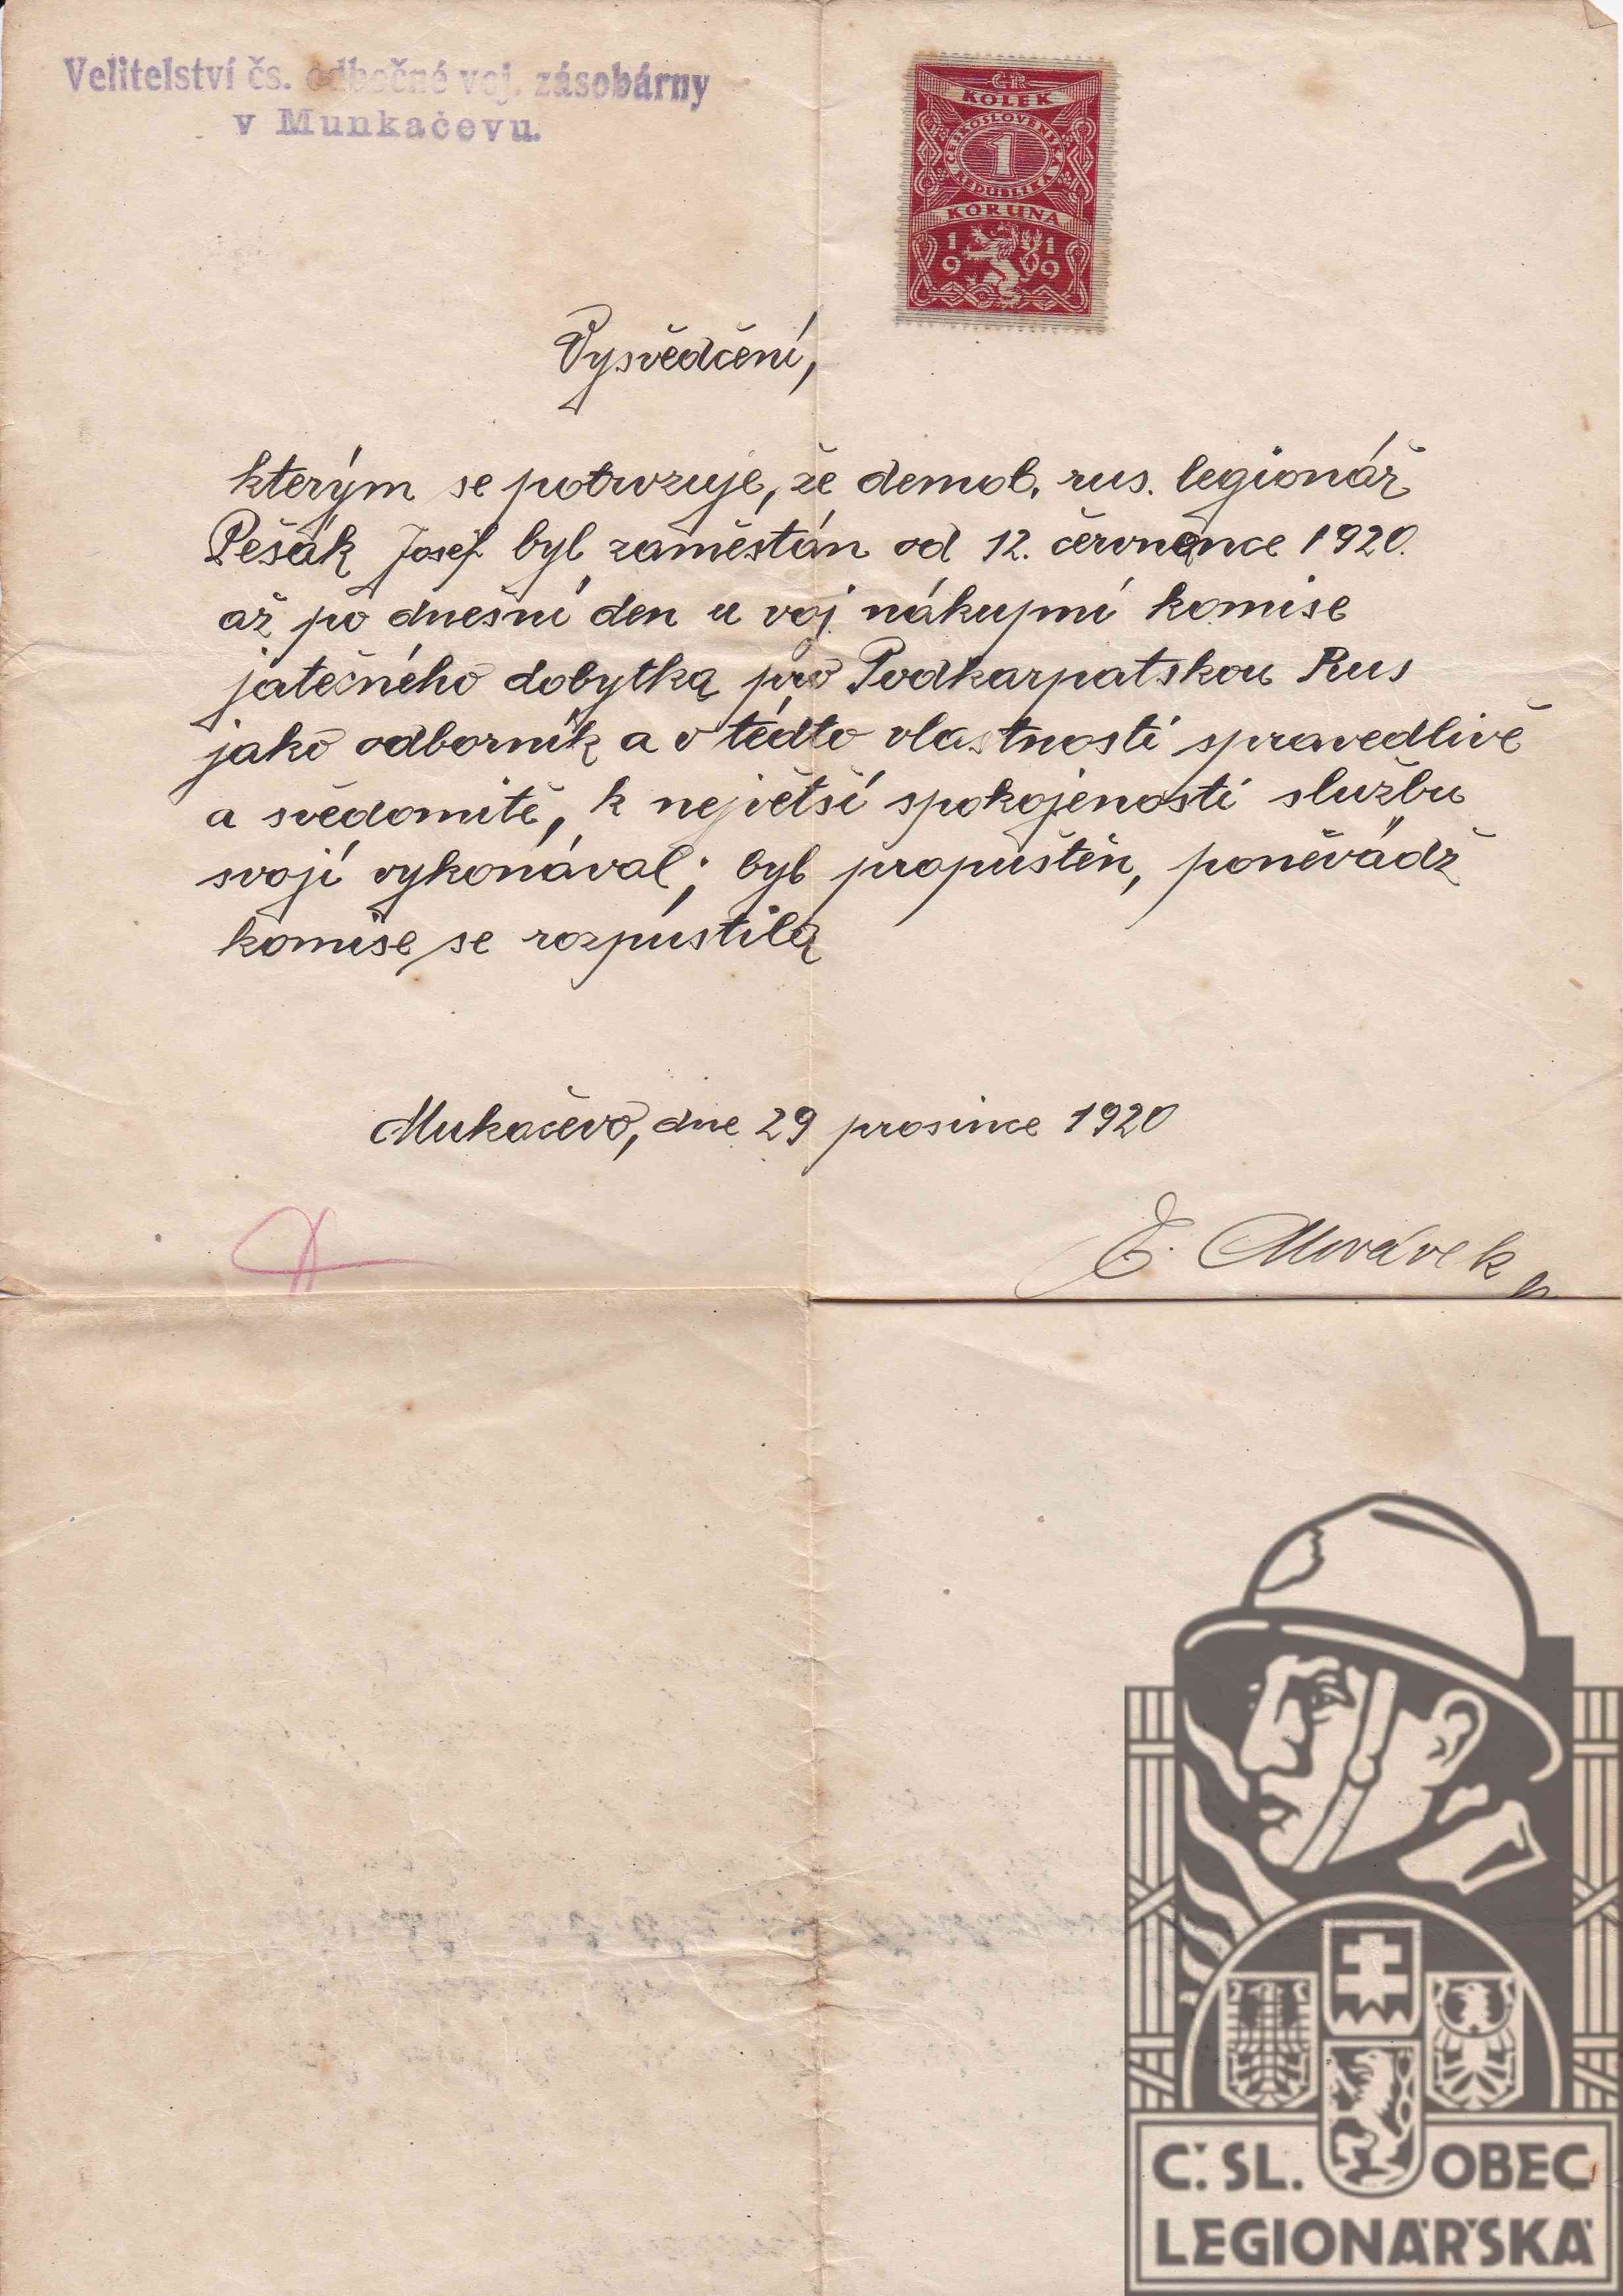 Velitelství čs. odbočné voj. zásobárny
v Munkačevu.
ČR
KOLEK
ČESKOSLOVENSKÁ
1
REPUBLIKA
KORUNA
1 1
9 9
Vysvědčení,
kterým se potvrzuje, že demob. rus. legionář
Pešák Josef byl zaměstán od 12. července 1920.
až po dnešní den u voj. nákupní komise
jatečného dobytka pro Podkarpatskou Rus
jako odborník a v tédto vlastnosti spravedlivě
a svědomitě, k největší spokojenosti službu
svojí vykonával; byl propuštěn, poněvádž
komise se rozpustila
Mukačevo, dne 29 prosince 1920
E. Morávek
Č. SL. OBEC
LEGIONÁŘSKÁ